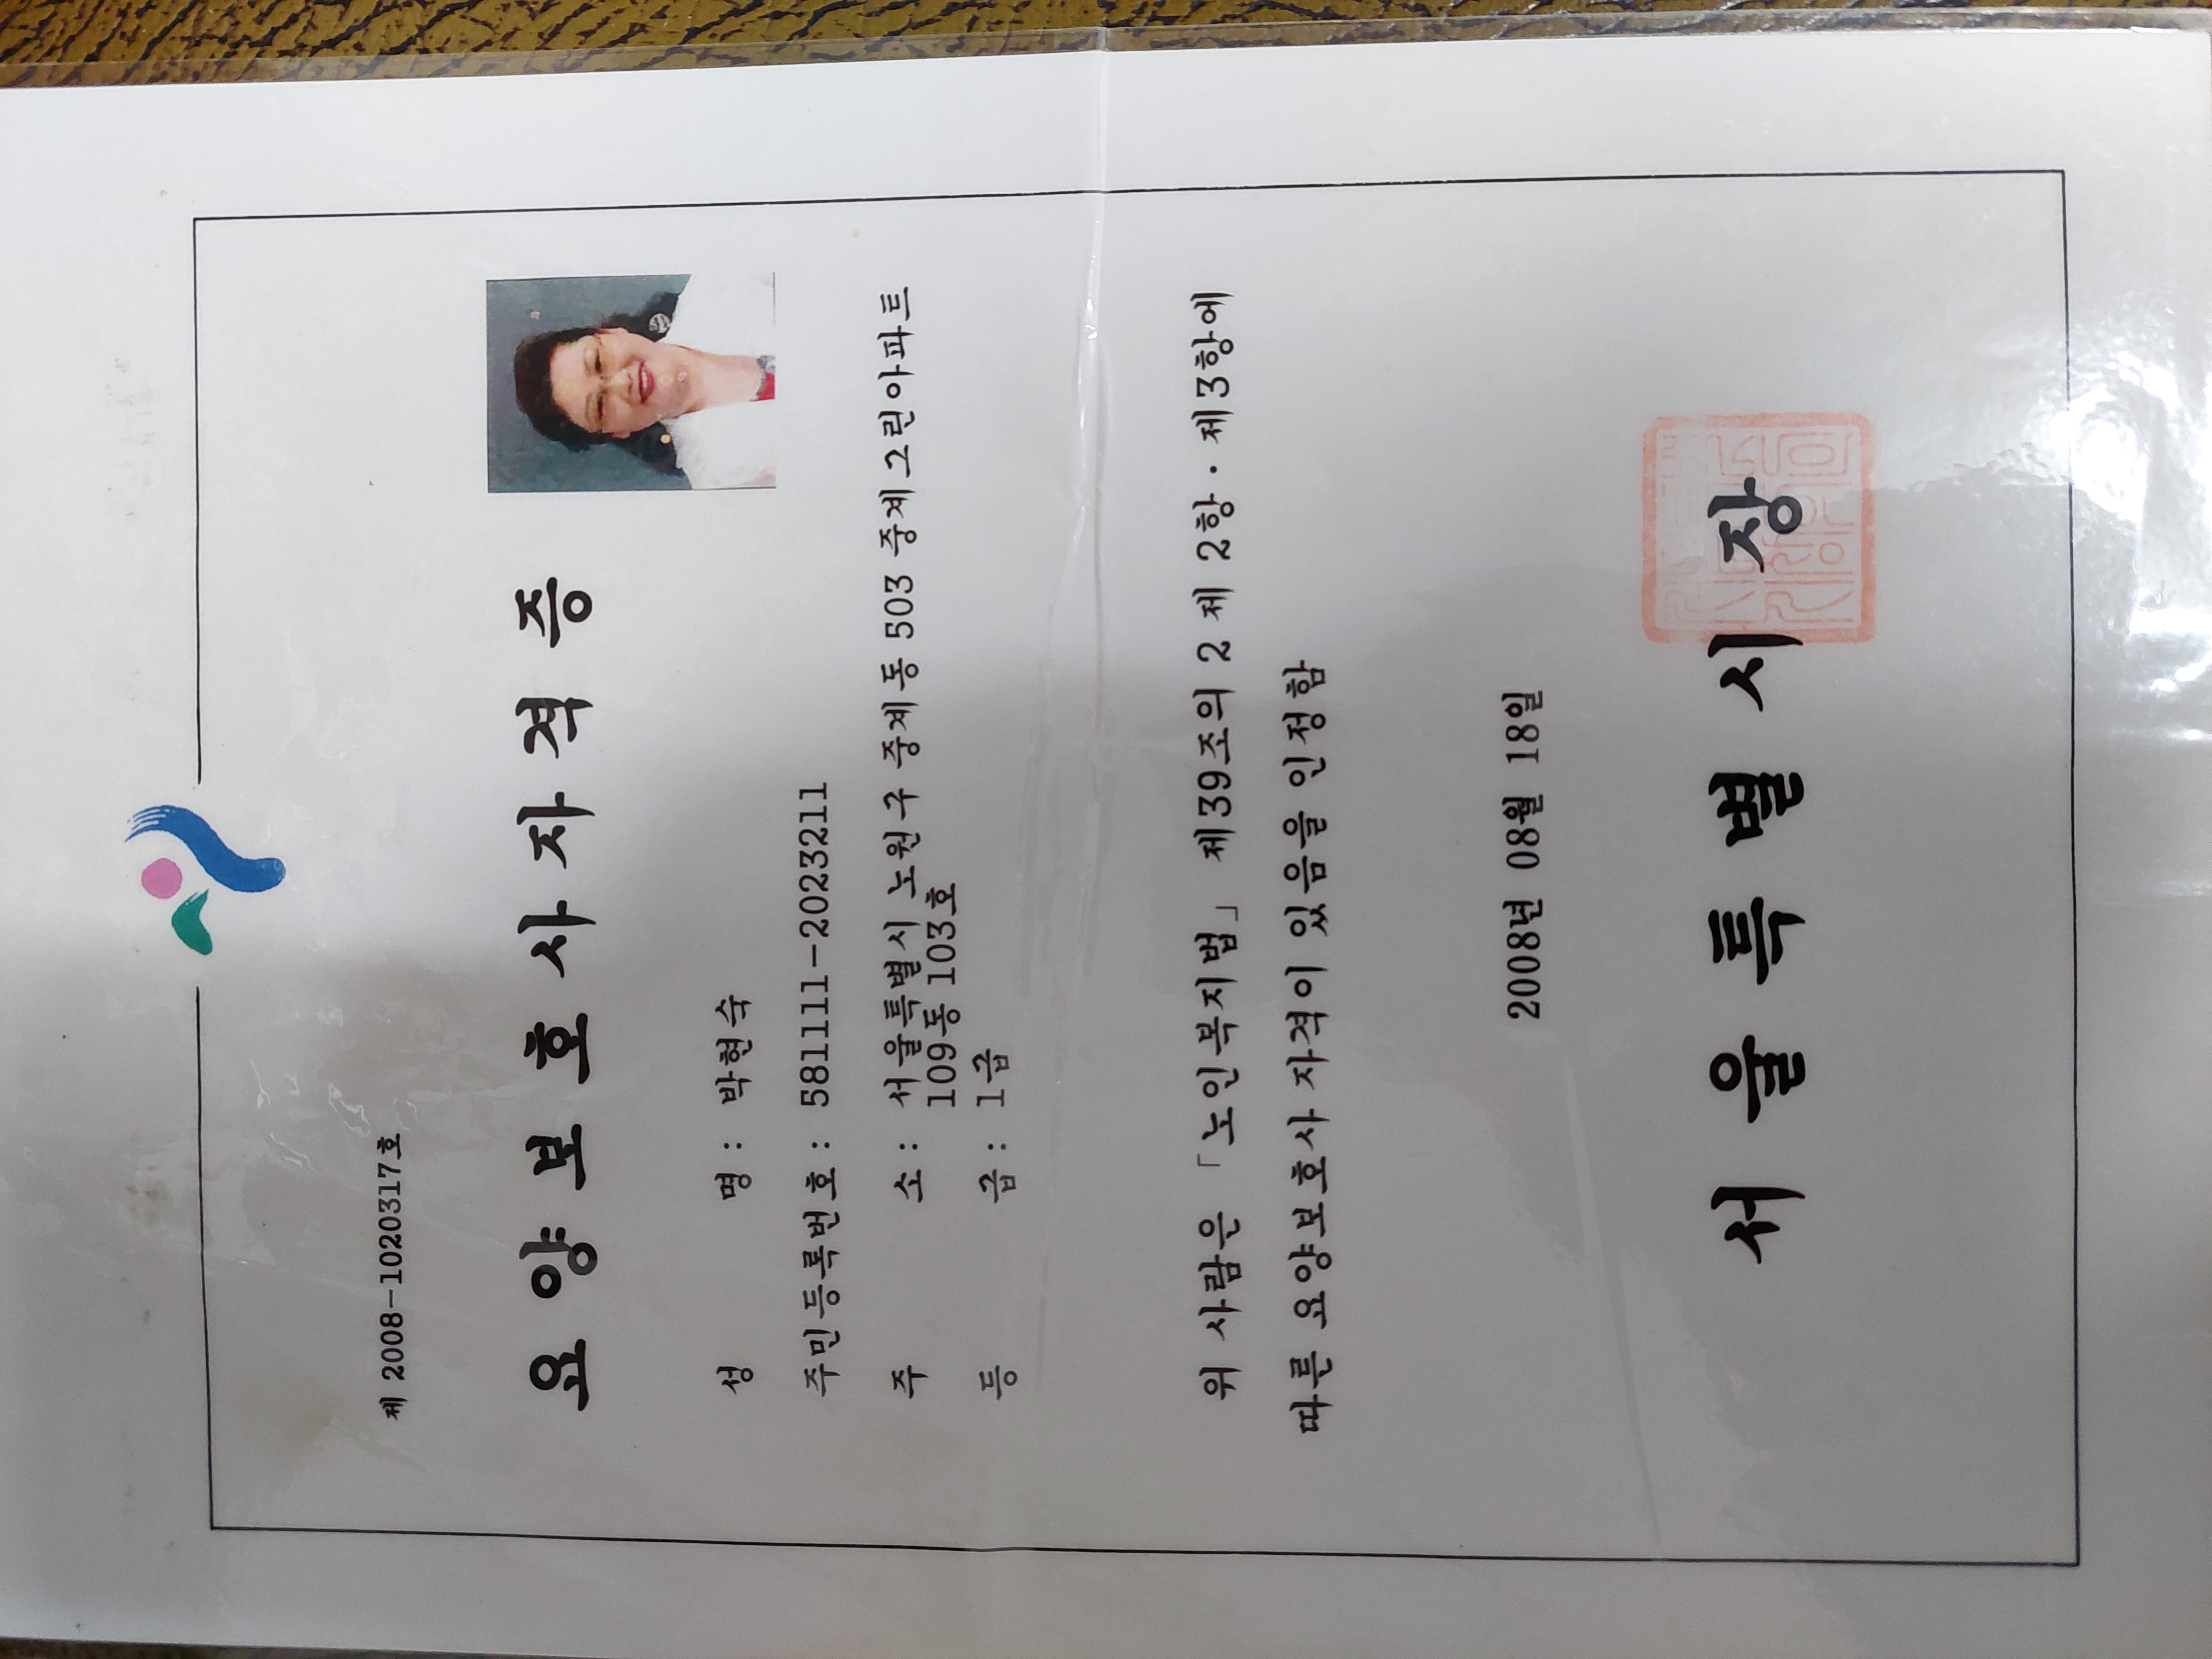 제 2008-1020317호
요양보호사자격증
성 명 : 박현숙
주민등록번호 : 581111-2023211
주 소 : 서울특별시 노원구 중계동 503 중계그린아파트
109동 103호
등 급 : 1급
위 사람은 「노인복지법」 제39조의 2 제 2항 · 제3항에
따른 요양보호사 자격이 있음을 인정함
2008년 08월 18일
서울특별시장